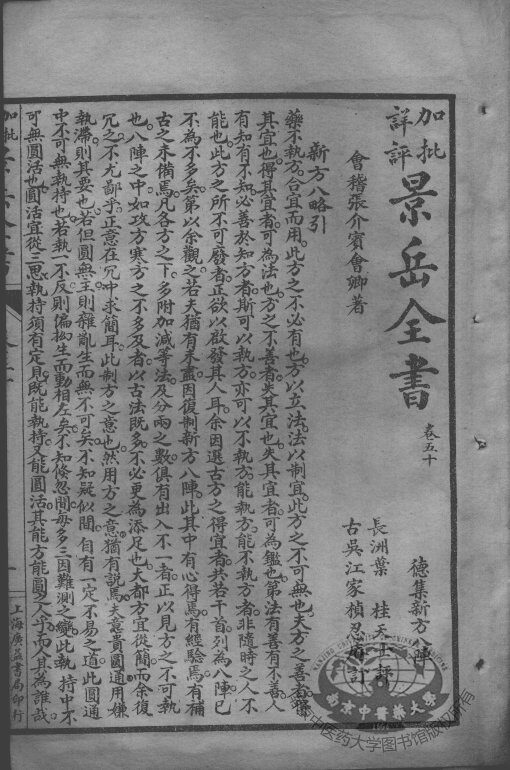 加批
詳評
景岳全書
卷五十
德集新方八陣
會稽張介賓會卿著
長洲葉桂天士評
古吳江家楨忍庵訂
新方八略引
藥不執方。合宜而用。此方之不必有也。方以立法。法以制宜。此方之不可無也。夫方之善者。得
其宜也。得其宜者。可為法也。方之不善者。失其宜也。失其宜者。可為鑑也。第法有善有不善。人
有知有不知。必善於知方者。斯可以執方。亦可以不執方。能執方。能不執方者。非隨時之人不
能也。此方之所不可廢者。正欲以啟發其人耳。余因選古方之得宜者。共若干首。列為八陣。已
不為不多矣。第以余觀之。若夫猶有未盡。因復制新方八陣。此其中有心得焉。有經驗焉。有補
古之未備焉。凡各方之下。多附加減等法。及分兩之數。俱有出入不一者。正以見方之不可執
也。八陣之中。如攻方寒方之不多及者。以古法既多。不必更為添足也。大都方宜從簡。而余復
冗之。不尤鄙乎。正意在冗中求簡耳。此制方之意也。然用方之意。猶有說焉。夫意貴圓通。用嫌
執滯。則其要也。若但圓無主。則雜亂生而無不可矣。不知疑似間。自有一定不易之道。此圓通
中不可無執持也。若執一不反。則偏拗生而動相左矣。不知倏忽間。每多三因難測之變。此執持中不
可無圓活也。圓活宜從三思。執持須有定見。既能執持。又能圓活。其能方能圓之人乎。而人其為誰哉
加批
上海廣益書局印行
南京中醫藥大學
中医药大学图书馆版权所有